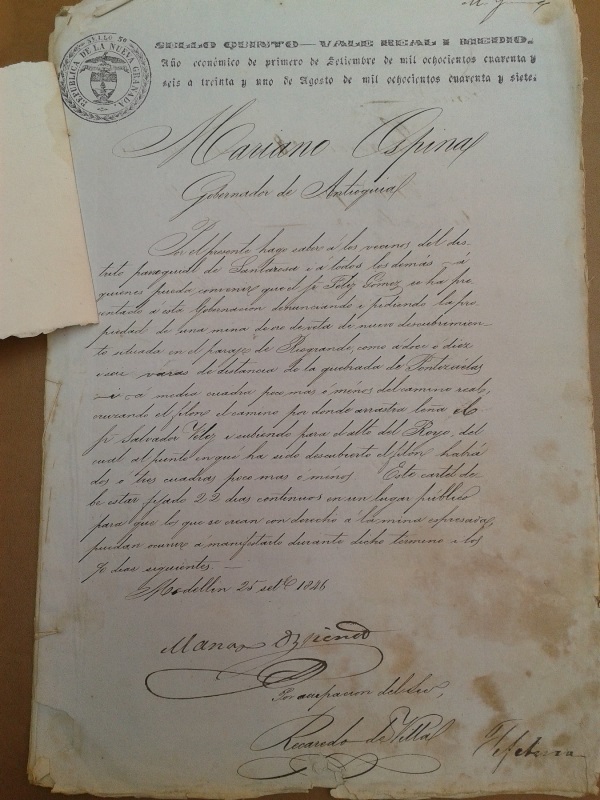 SELLO 5º
REPUBLICA DE LA NUEVA GRANADA.
SELLO QUINTO—VALE REAL I MEDIO.
Año económico de primero de Setiembre de mil ochocientos cuarenta y
seis a treinta y uno de Agosto de mil ochocientos cuarenta y siete.
Mariano Ospina
Gobernador de Antioquia
Por el presente hago saber a los vecinos del dis-
trito parroquial de Santarosa i á todos los demás á
quienes pueda convenir que el Sr Feliz Gómez se ha pre-
sentado a está Gobernacion denunciando i pidiendo la pro-
piedad de una mina de oro de veta de nuevo descubrimien-
to situada en el paraje de Riogrande, como a doce o diez
varas de distancia de la quebrada de
i á media cuadra poco mas o ménos del camino real,
cruzando el filon el camino por donde arrastra leña el
Sr Salvador Velez i subiendo para el alto del Royo, del
cual al punto en que ha sido descubierto el filón habrá
dos o trés cuadras poco mas o ménos. Este cartel de-
be estar fijado 22 dias continuos en un lugar publico
para que los que se crean con derecho á la mina espresada,
puedan ocurrir a manifestarlo durante dicho termino i los
dias siguientes.—
Medellin 25 setbe. 1846
Por ocupacion del Srio,
Recaredo de Villa